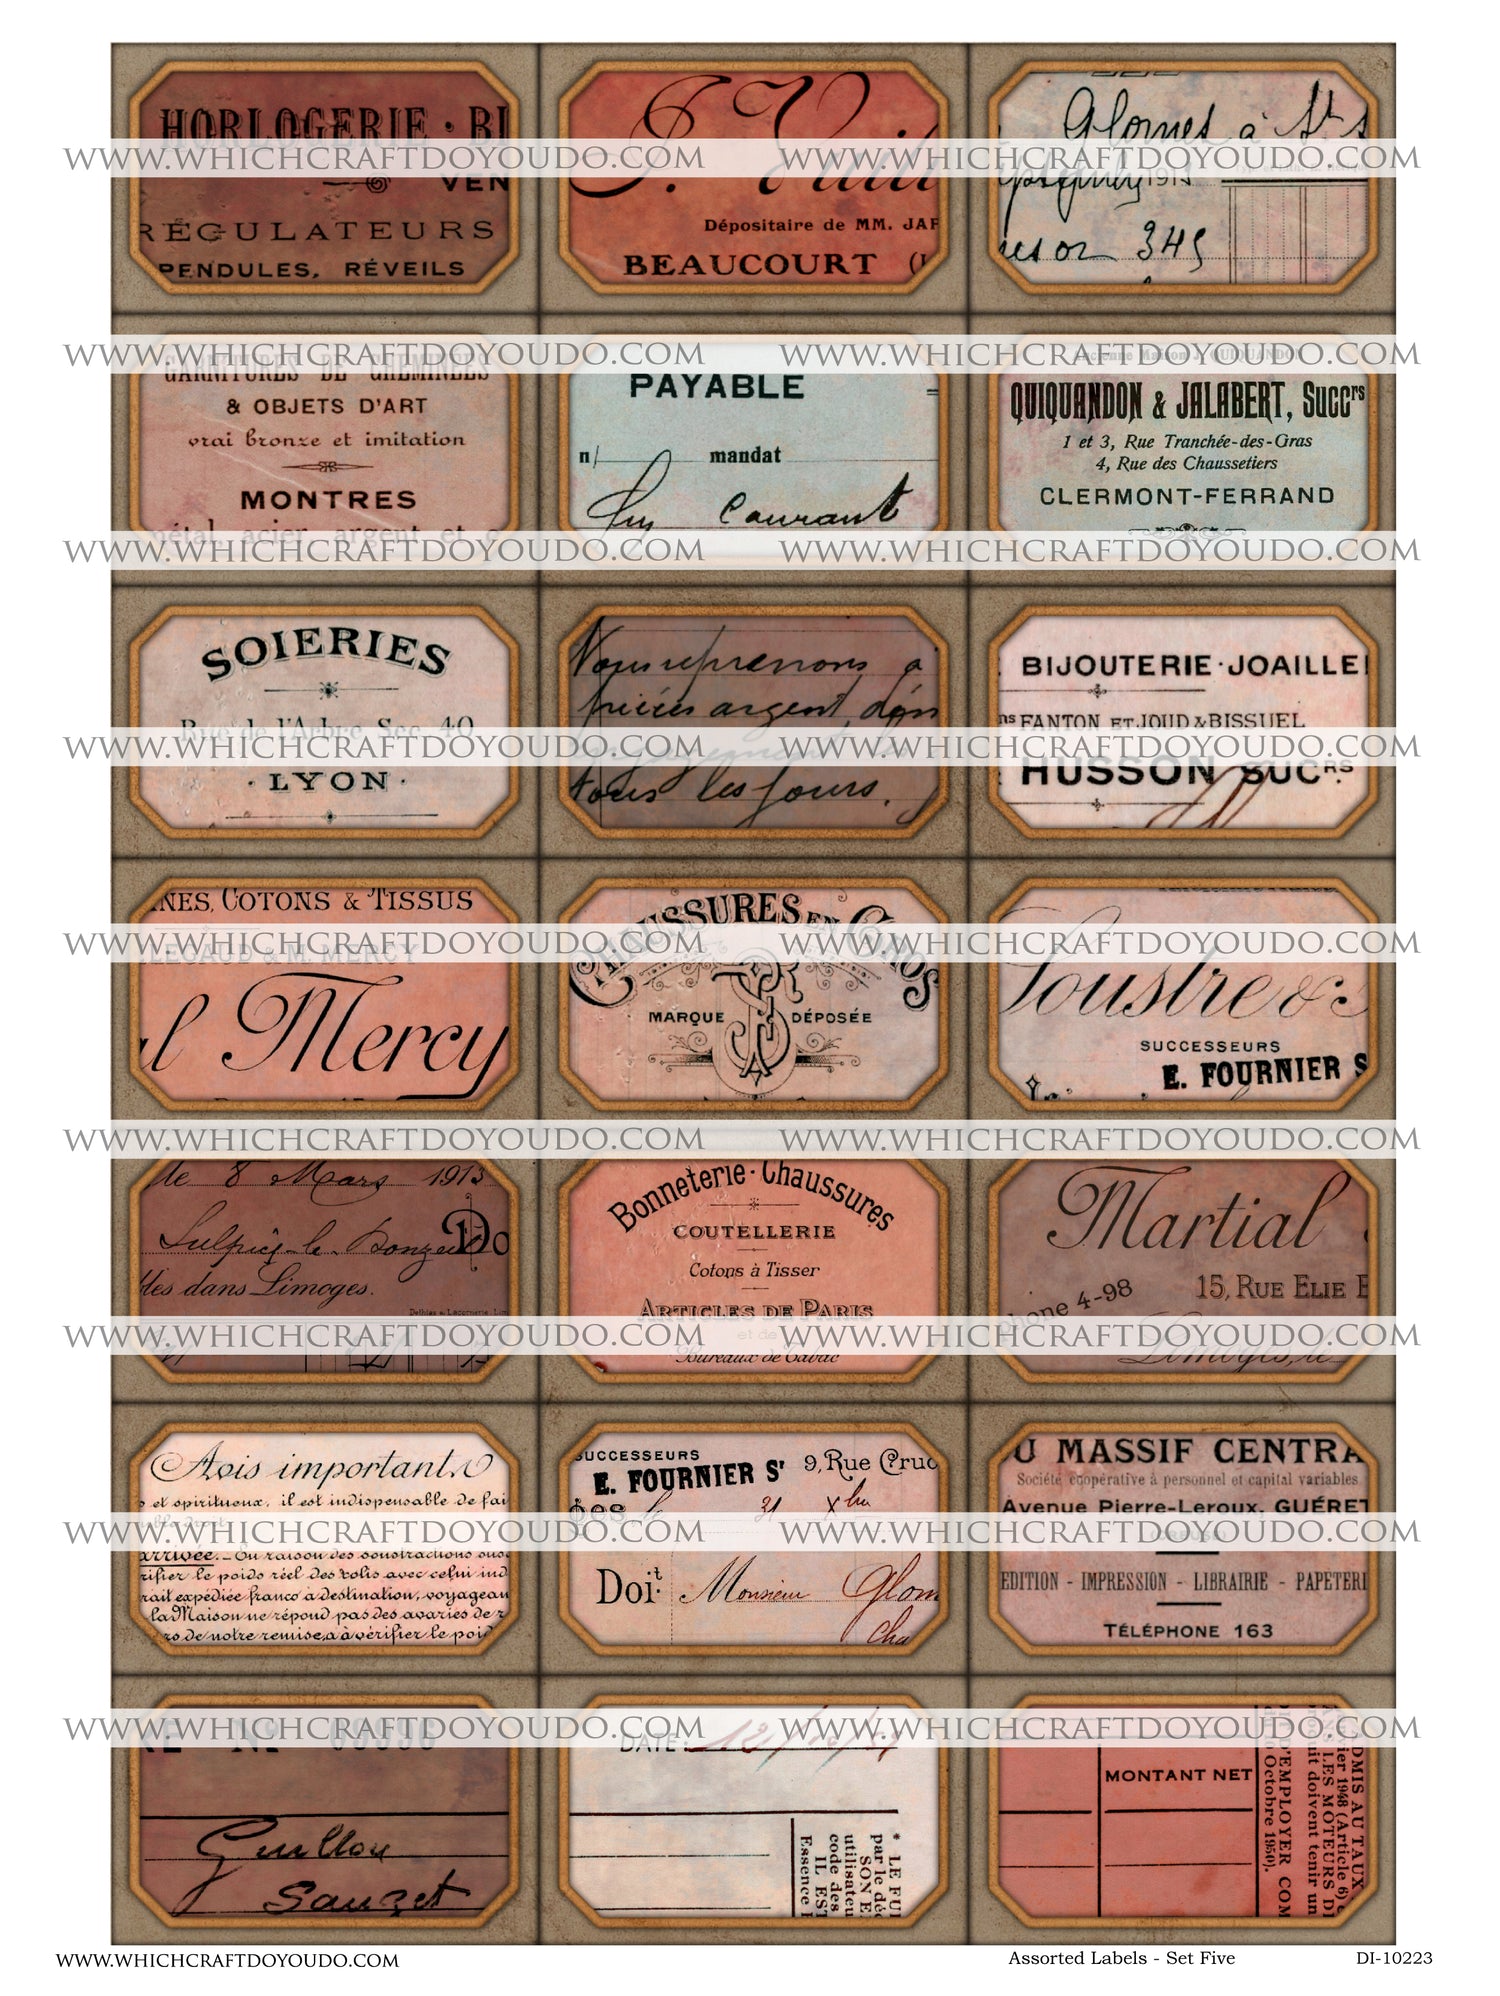 HORLOGERIE · BI
VEN
RÉGULATEURS
PENDULES, RÉVEILS
J.
Dépositaire de MM. JAP
BEAUCOURT
Glomes à St
191
345
WWW.WHICHCRAFTDOYOUDO.COM WWW.WHICHCRAFTDOYOUDO.COM
GARNITURES DE CHEMINÉES
& OBJETS D'ART
vrai bronze et imitation
MONTRES
métal, acier, argent et
PAYABLE
n/ mandat
Courant
Ancienne Maison J. QUIQUANDON
QUIQUANDON & JALABERT, Succrs
1 et 3, Rue Tranchée-des-Gras
4, Rue des Chaussetiers
CLERMONT-FERRAND
WWW.WHICHCRAFTDOYOUDO.COM WWW.WHICHCRAFTDOYOUDO.COM
WWW.WHICHCRAFTDOYOUDO.COM WWW.WHICHCRAFTDOYOUDO.COM
SOIERIES
Rue de l'Arbre Sec, 40
· LYON ·
Nous reprenons a
argent, don
tous les jours.
BIJOUTERIE · JOAILLE
ns FANTON ET JOUD & BISSUEL
HUSSON SUCRS
WWW.WHICHCRAFTDOYOUDO.COM WWW.WHICHCRAFTDOYOUDO.COM
NES, COTONS & TISSUS
LEGAUD & M. MERCY
l Mercy
CHAUSSURES EN GROS
MARQUE DÉPOSÉE
Loustre & S
SUCCESSEURS
E. FOURNIER S
WWW.WHICHCRAFTDOYOUDO.COM WWW.WHICHCRAFTDOYOUDO.COM
WWW.WHICHCRAFTDOYOUDO.COM WWW.WHICHCRAFTDOYOUDO.COM
le 8 Mars 1913
Do
dans Limoges.
Bonneterie · Chaussures
COUTELLERIE
Cotons à Tisser
ARTICLES DE PARIS
et de
Bureaux de Tabac
Martial
phone 4-98 15, RUE ELIE B
Limoges, le
WWW.WHICHCRAFTDOYOUDO.COM WWW.WHICHCRAFTDOYOUDO.COM
Avis important.
et spiritueux, il est indispensable de fai
arrivée. – En raison des soustractions
rifier le poids réel des colis avec celui ind
rait expédiée franco à destination, voyagean
la Maison ne répond pas des avaries de r
rs de notre remise, à vérifier le poid
SUCCESSEURS
E. FOURNIER Sr 9, Rue Cruc
le 31 Xbre
Doit Monsieur Glom
U MASSIF CENTRA
Société coopérative à personnel et capital variables
Avenue Pierre-Leroux, GUÉRET
(CREUSE)
EDITION - IMPRESSION - LIBRAIRIE - PAPETERI
TÉLÉPHONE 163
WWW.WHICHCRAFTDOYOUDO.COM WWW.WHICHCRAFTDOYOUDO.COM
Guillou
Sauzet
DATE:
* LE FUI
par le déc
SON E
utilisateu
code des
IL EST
Essence
MONTANT NET
DMIS AU TAUX
vrier 1948 (Article 6)
LES MOTEURS DI
uit doivent tenir un
D'EMPLOYER COM
Octobre 1950).
WWW.WHICHCRAFTDOYOUDO.COM WWW.WHICHCRAFTDOYOUDO.COM
WWW.WHICHCRAFTDOYOUDO.COM Assorted Labels - Set Five DI-10223